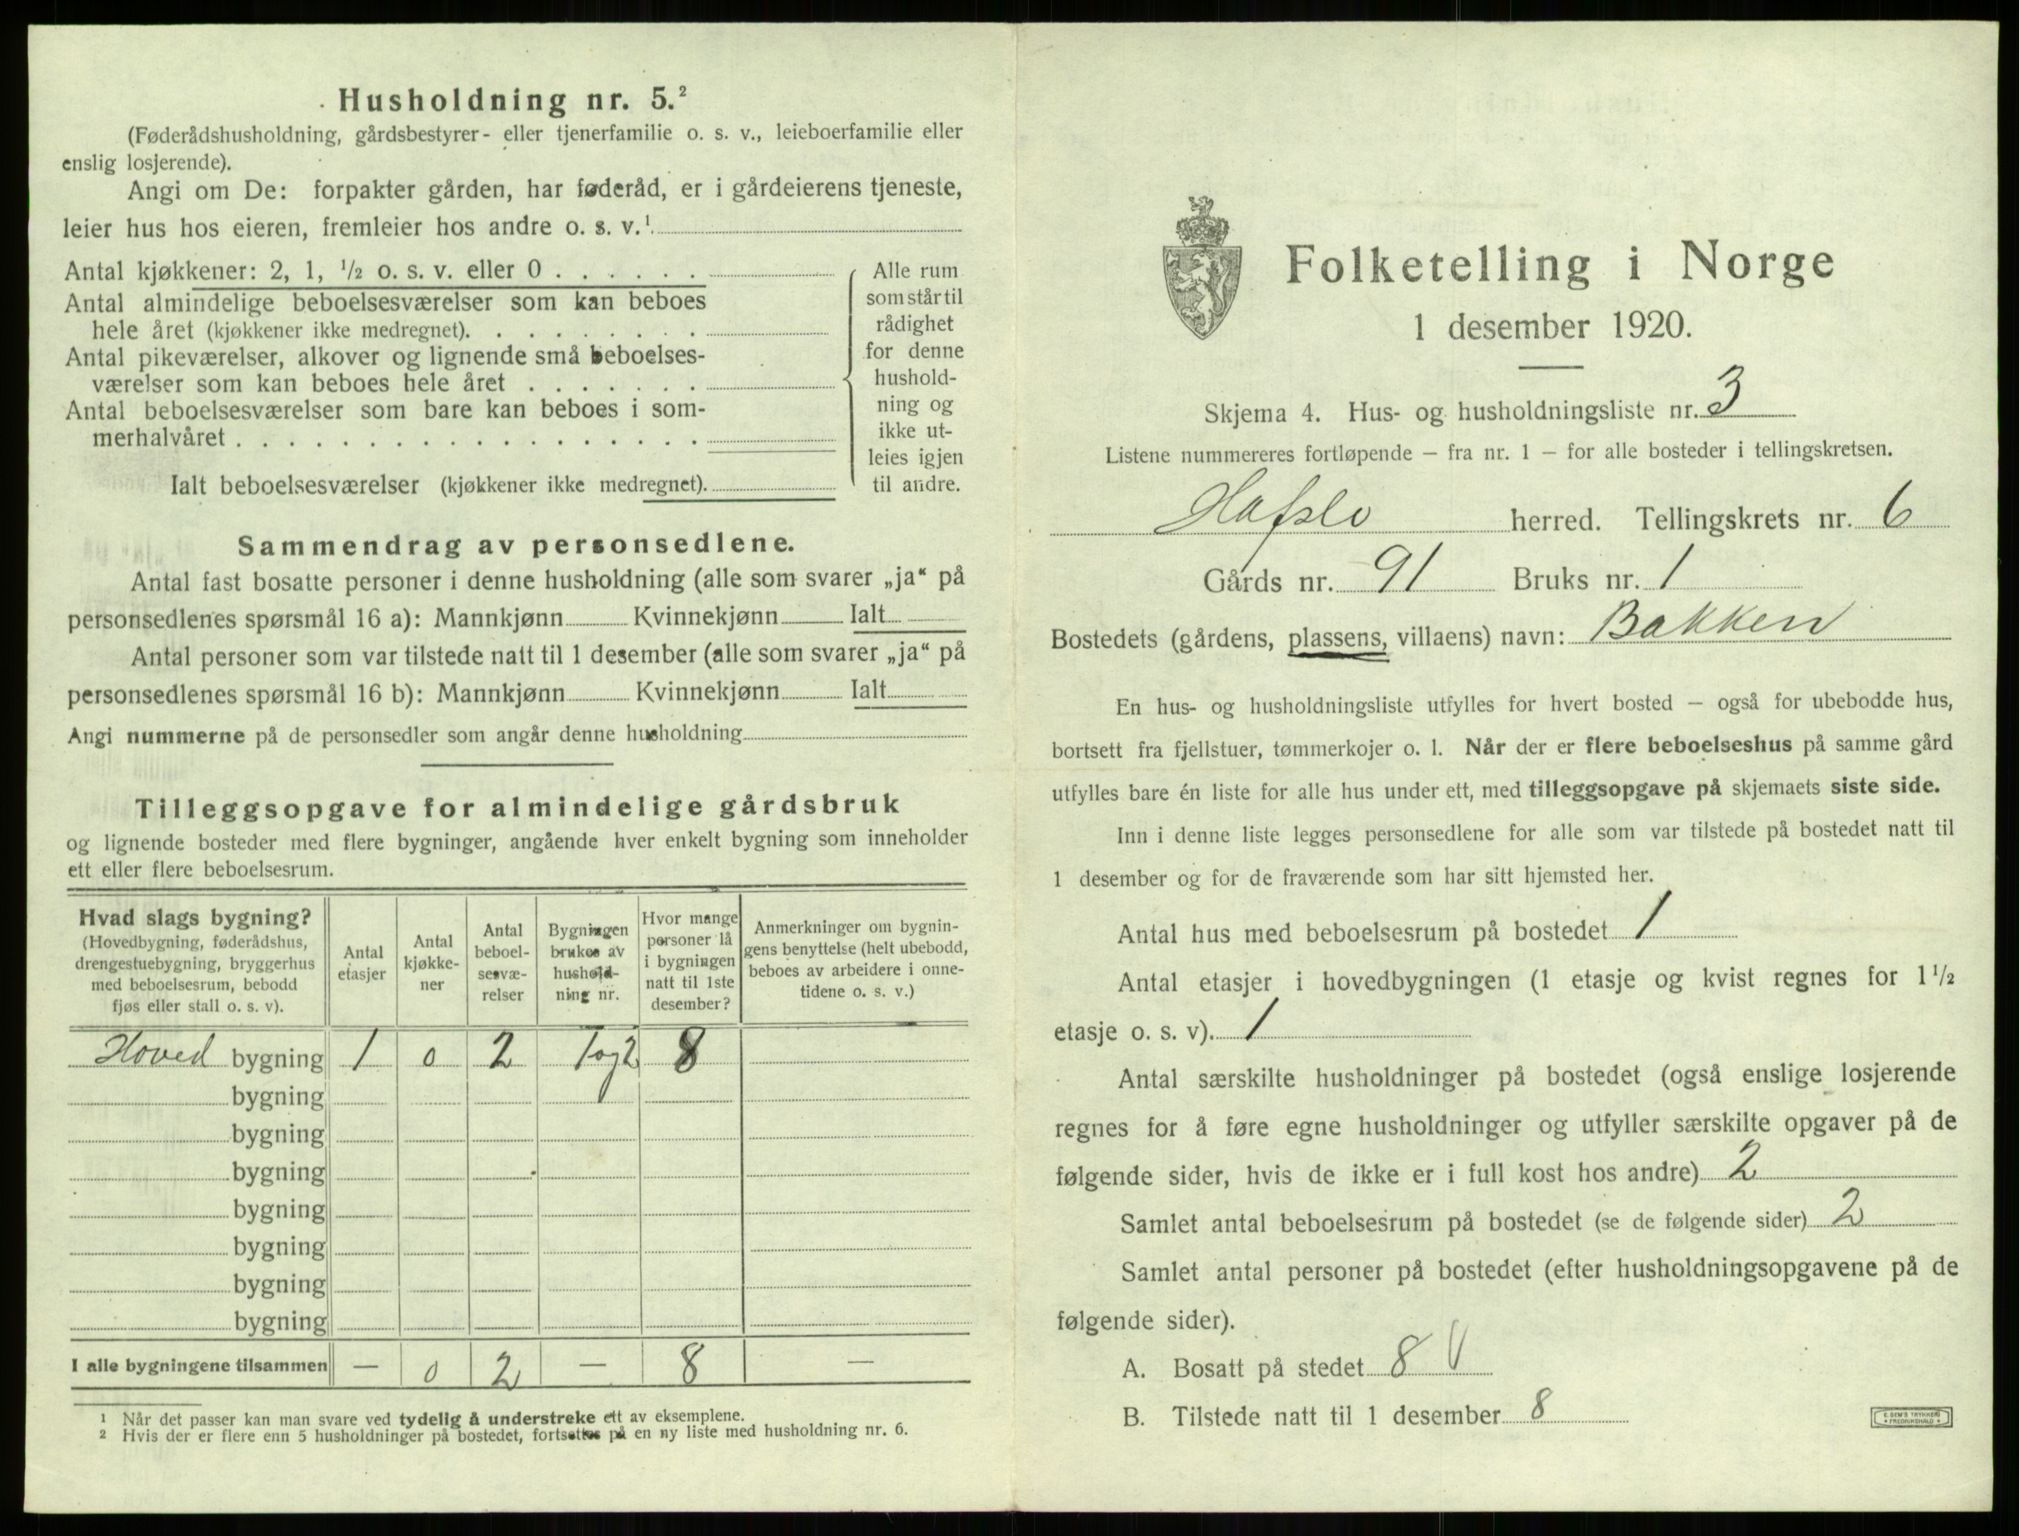 Husholdning nr. 5.²
(Føderådshusholdning, gårdsbestyrer- eller tjenerfamilie o. s. v., leieboerfamilie eller
enslig losjerende).
Angi om De: forpakter gården, har føderåd, er i gårdeierens tjeneste,
leier hus hos eieren, fremleier hos andre o. s. v.¹
Antal kjøkkener: 2, 1, ½ o. s. v. eller 0 . . . . . .
Antal almindelige beboelsesværelser som kan beboes
hele året (kjøkkener ikke medregnet). . . . . . . . .
Antal pikeværelser, alkover og lignende små beboelses-
værelser som kan beboes hele året . . . . . . .
Antal beboelsesværelser som bare kan beboes i som-
merhalvåret . . . . . . . . . . . . . . . . . .
Ialt beboelsesværelser (kjøkkener ikke medregnet).
Alle rum
som står til
rådighet
for denne
hushold-
ning og
ikke ut-
leies igjen
til andre.
Sammendrag av personsedlene.
Antal fast bosatte personer i denne husholdning (alle som svarer „ja“ på
personsedlenes spørsmål 16 a): Mannkjønn Kvinnekjønn Ialt
Antal personer som var tilstede natt til 1 desember (alle som svarer „ja“ på
personsedlenes spørsmål 16 b): Mannkjønn Kvinnekjønn Ialt
Angi nummerne på de personsedler som angår denne husholdning
Tilleggsopgave for almindelige gårdsbruk
og lignende bosteder med flere bygninger, angående hver enkelt bygning som inneholder
ett eller flere beboelsesrum.
Hvad slags bygning?
(Hovedbygning, føderådshus,
drengestuebygning, bryggerhus
med beboelsesrum, bebodd
fjøs eller stall o. s. v).
Antal
etasjer
Antal
kjøkke-
ner
Antal
beboel-
sesvæ-
relser
Bygningen
brukes av
hushold-
ning nr.
Hvor mange
personer lå
i bygningen
natt til 1ste
desember?
Anmerkninger om bygnin-
gens benyttelse (helt ubebodd,
beboes av arbeidere i onne-
tidene o. s. v.)
Hoved bygning 1 0 2 1 og 2 8
bygning
bygning
bygning
bygning
bygning
bygning
bygning
I alle bygningene tilsammen — 0 2 — 8 —
¹ Når det passer kan man svare ved tydelig å understreke ett av eksemplene.
² Hvis der er flere enn 5 husholdninger på bostedet, fortsettes på en ny liste med husholdning nr. 6.
Folketelling i Norge
1 desember 1920.
Skjema 4. Hus- og husholdningsliste nr. 3
Listene nummereres fortløpende — fra nr. 1 — for alle bosteder i tellingskretsen.
Hafslo herred. Tellingskrets nr. 6
Gårds nr. 91 Bruks nr. 1
Bostedets (gårdens, plassens, villaens) navn: Bakken
En hus- og husholdningsliste utfylles for hvert bosted — også for ubebodde hus,
bortsett fra fjellstuer, tømmerkojer o. l. Når der er flere beboelseshus på samme gård
utfylles bare én liste for alle hus under ett, med tilleggsopgave på skjemaets siste side.
Inn i denne liste legges personsedlene for alle som var tilstede på bostedet natt til
1 desember og for de fraværende som har sitt hjemsted her.
Antal hus med beboelsesrum på bostedet 1
Antal etasjer i hovedbygningen (1 etasje og kvist regnes for 1½
etasje o. s. v). 1
Antal særskilte husholdninger på bostedet (også enslige losjerende
regnes for å føre egne husholdninger og utfyller særskilte opgaver på de
følgende sider, hvis de ikke er i full kost hos andre) 2
Samlet antal beboelsesrum på bostedet (se de følgende sider) 2
Samlet antal personer på bostedet (efter husholdningsopgavene på de
følgende sider).
A. Bosatt på stedet 8 V
B. Tilstede natt til 1 desember 8